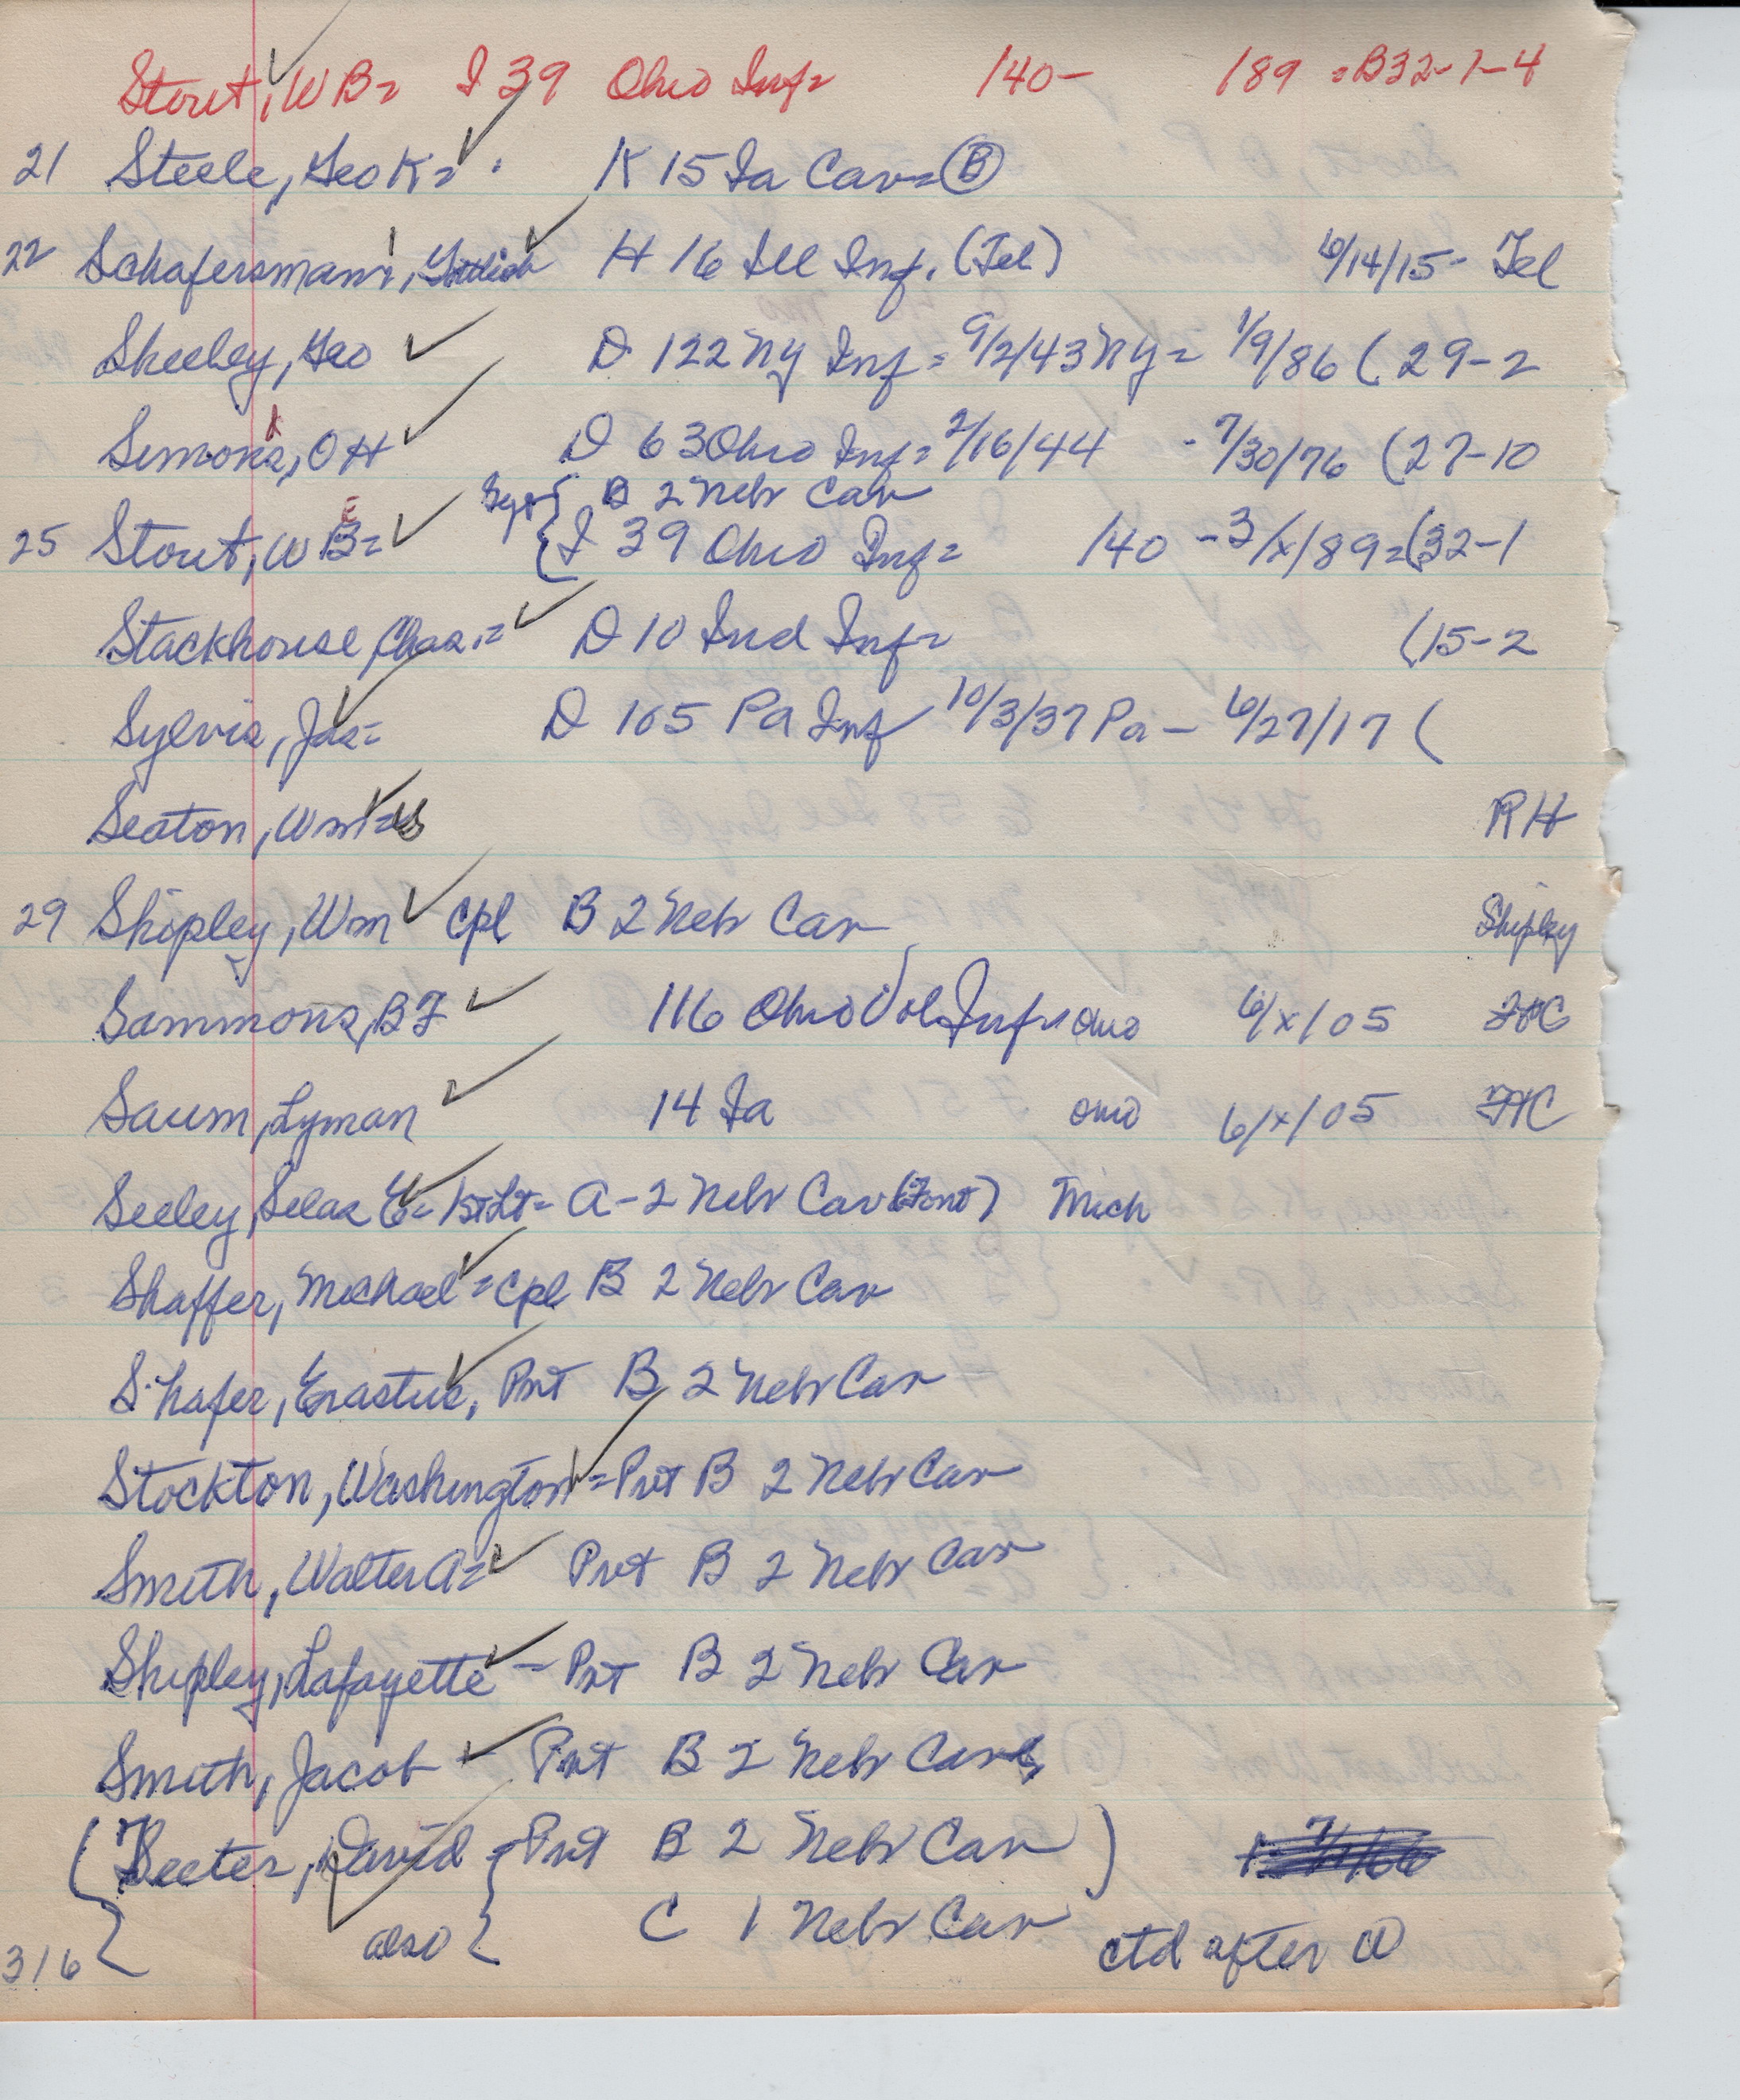 Stout, WB= I 39 Ohio Inf= 140- 189 =B32-1-4
21 Steele, Geo K= K 15 Ia Cav= B
22 Schafersman, Gottlieb H 16 Ill Inf. (Tel) 6/14/15- Tel
Sheeley, Geo D 122 NY Inf= 9/2/43 NY= 1/9/86 (29-2
Simons, OH D 63 Ohio Inf= 2/16/44 - 7/30/76 (27-10
B 2 Nebr Cav
25 Stout, WB= { I 39 Ohio Inf= 140 -3/x/89=(32-1
Stackhouse, Chas.= D 10 Ind Inf= (15-2
Sylvis, Jas= D 105 Pa Inf 10/3/37 Pa- 6/27/17 (
Seaton, Wm= RH
29 Shipley, Wm Cpl B 2 Nebr Cav Shipley
Sammons, BF 116 Ohio Vol Inf= Ohio 6/x/05 FHC
Saum, Lyman 14 Ia Ohio 6/x/05 FHC
Seeley, Selas E= 1st Lt= A-2 Nebr Cav (Font) Mich
Shaffer, Michael= Cpl B 2 Nebr Cav
Shafer, Erastus, Pvt B 2 Nebr Cav
Stockton, Washington=Pvt B 2 Nebr Cav
Smith, Walter A= Pvt B 2 Nebr Cav
Shipley, Lafayette - Pvt B 2 Nebr Cav
Smith, Jacob - Pvt B 2 Nebr Cav
(Teeter, David { Pvt B 2 Nebr Cav)
316 { also { C 1 Nebr Cav ctd after